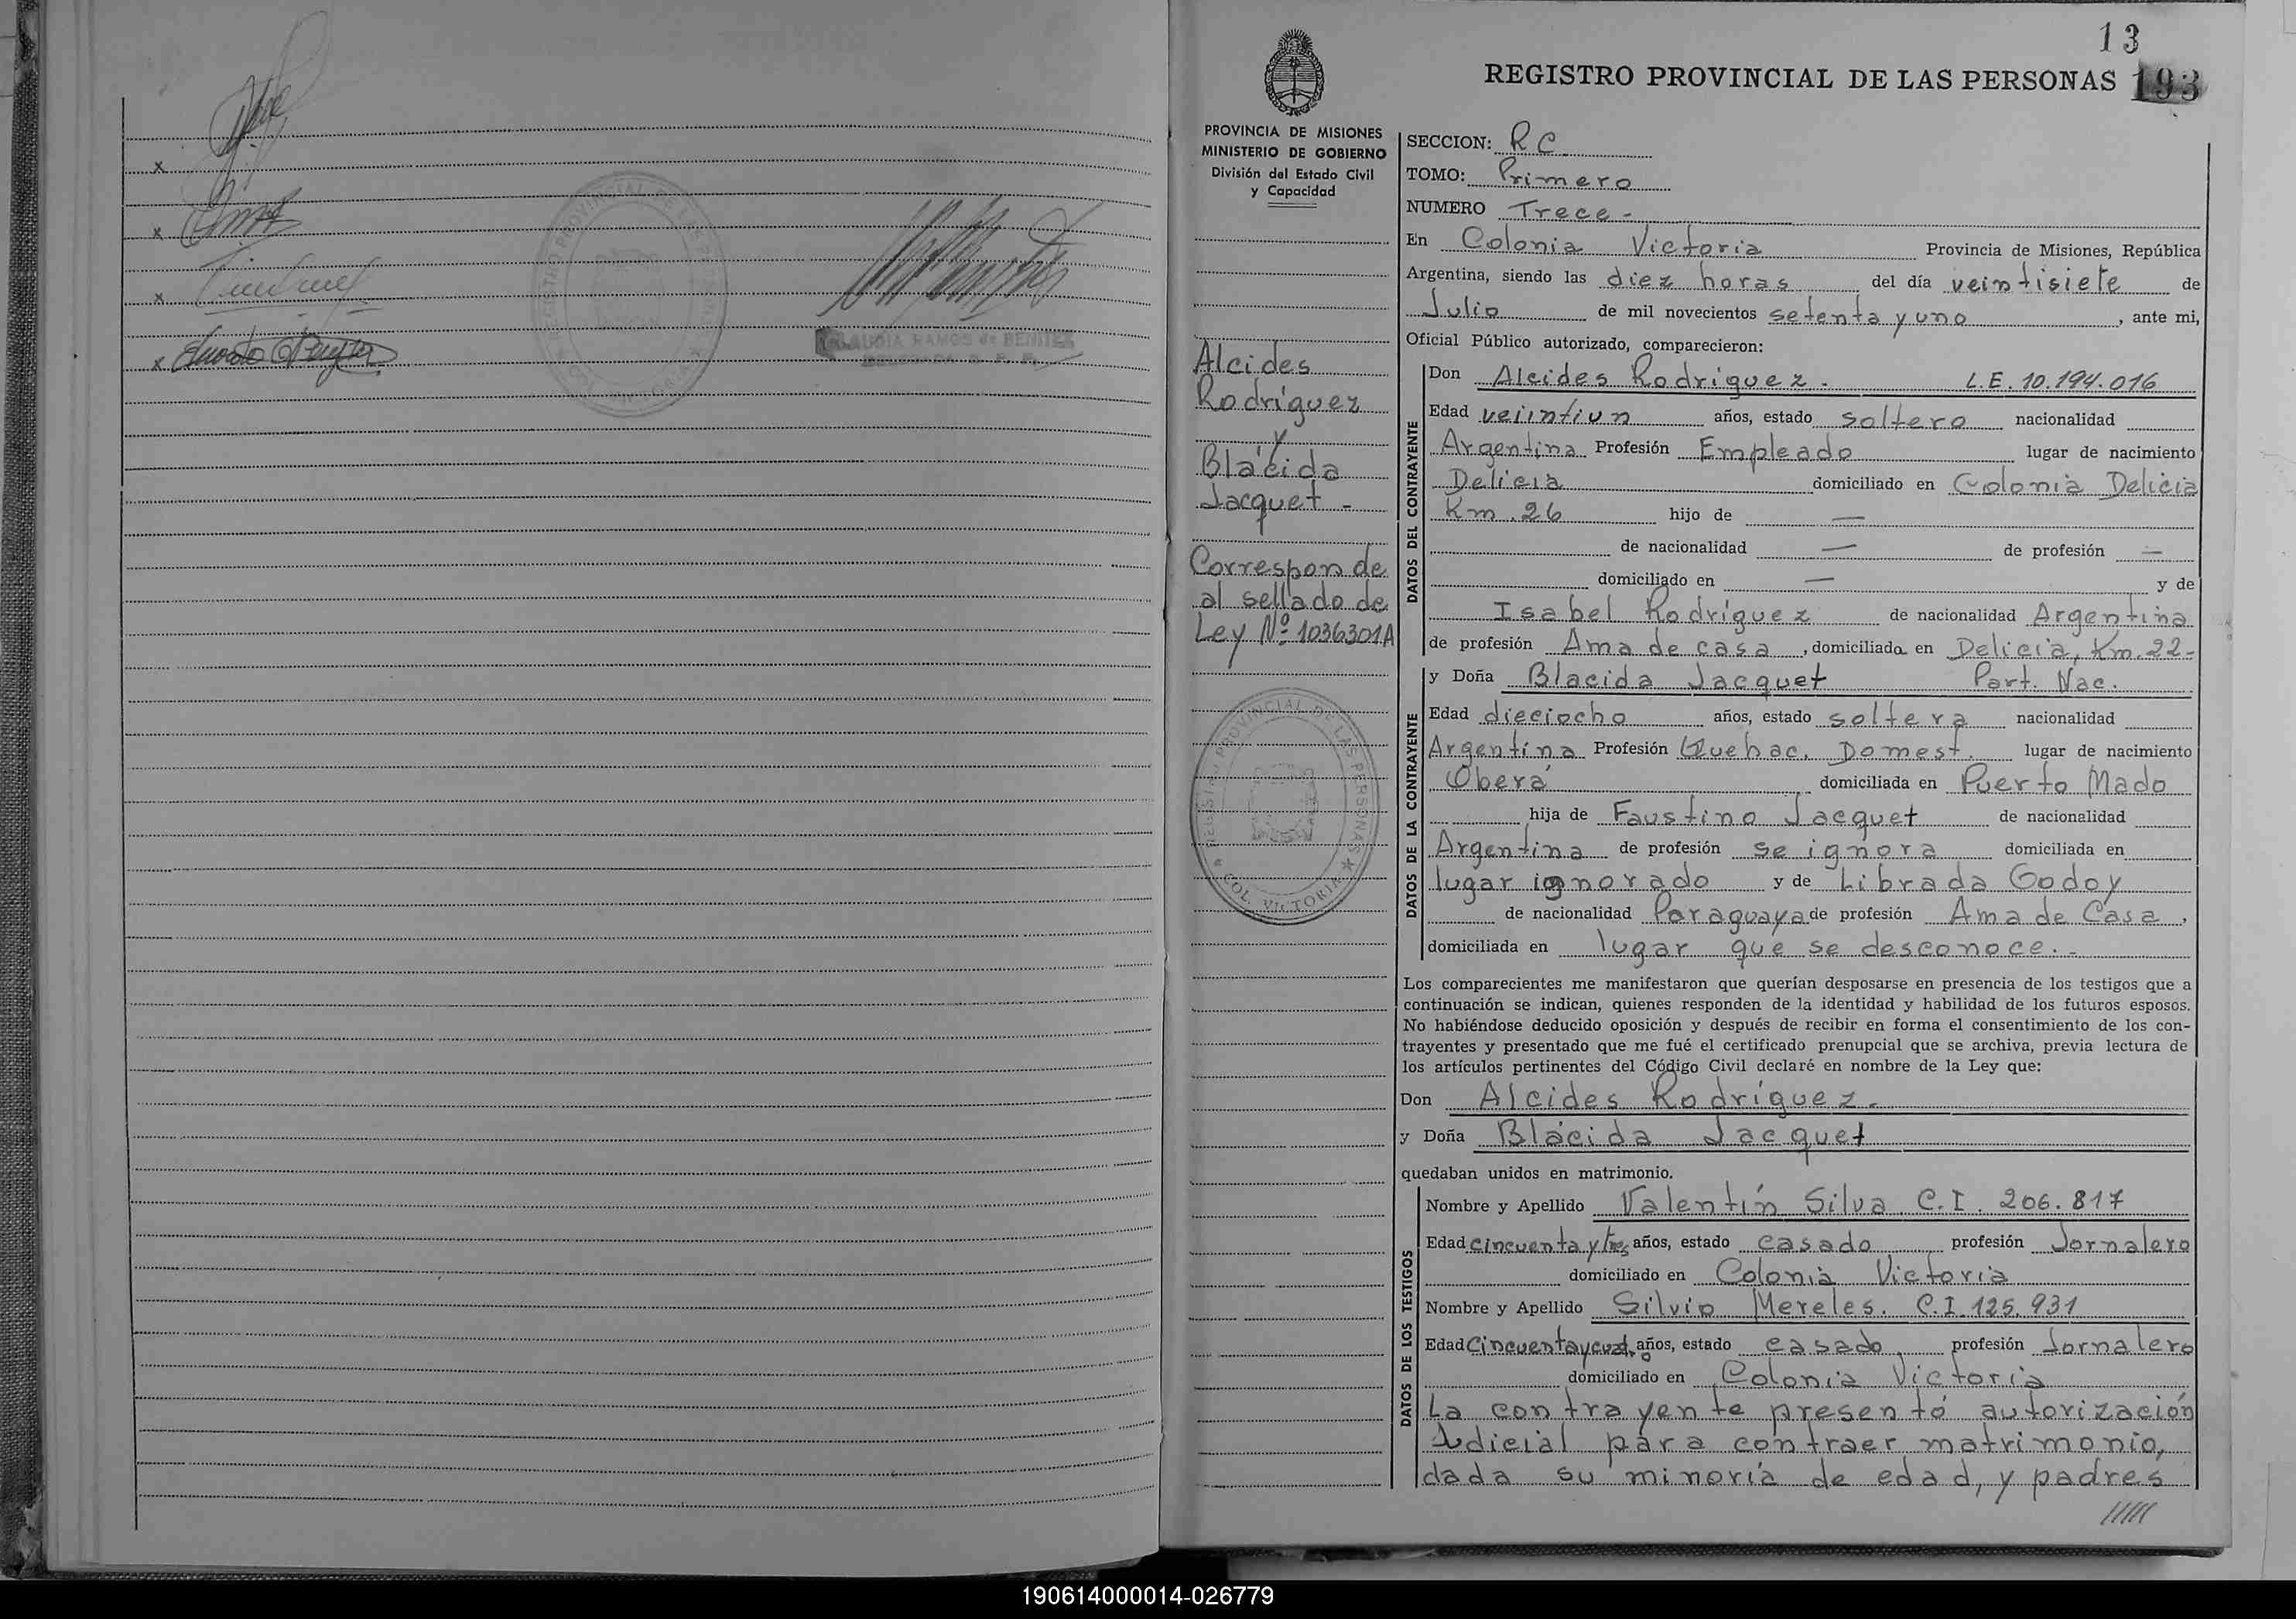 x
x
x
x
REGISTRO PROVINCIAL DE LAS PERSONAS
CLAUDIA RAMOS de BENITEZ
13
REGISTRO PROVINCIAL DE LAS PERSONAS 193
PROVINCIA DE MISIONES
MINISTERIO DE GOBIERNO
División del Estado Civil
y Capacidad
Alcides
Rodríguez
y
Blácida
Jacquet -
Corresponde
al sellado de
Ley Nº 1036301A
REGISTRO PROVINCIAL DE LAS PERSONAS
COL. VICTORIA
SECCION: RC
TOMO: Primero
NUMERO Trece -
En Colonia Victoria Provincia de Misiones, República
Argentina, siendo las diez horas del día veintisiete de
Julio de mil novecientos setenta y uno, ante mi,
Oficial Público autorizado, comparecieron:
DATOS DEL CONTRAYENTE
Don Alcides Rodríguez. L.E. 10.194.016
Edad veiintiun años, estado soltero nacionalidad
Argentina Profesión Empleado lugar de nacimiento
Delicia domiciliado en Colonia Delicia
Km 26 hijo de —
de nacionalidad — de profesión —
domiciliado en — y de
Isabel Rodríguez de nacionalidad Argentina
de profesión Ama de casa, domiciliada en Delicia, Km. 22-
DATOS DE LA CONTRAYENTE
y Doña Blacida Jacquet Part. Nac.
Edad dieciocho años, estado soltera nacionalidad
Argentina Profesión Quehac. Domest. lugar de nacimiento
Oberá domiciliada en Puerto Mado
hija de Faustino Jacquet de nacionalidad
Argentina de profesión se ignora domiciliada en
lugar ignorado y de Librada Godoy
de nacionalidad Paraguaya de profesión Ama de Casa,
domiciliada en lugar que se desconoce.-
Los comparecientes me manifestaron que querían desposarse en presencia de los testigos que a
continuación se indican, quienes responden de la identidad y habilidad de los futuros esposos.
No habiéndose deducido oposición y después de recibir en forma el consentimiento de los con-
trayentes y presentado que me fué el certificado prenupcial que se archiva, previa lectura de
los artículos pertinentes del Código Civil declaré en nombre de la Ley que:
Don Alcides Rodríguez.
y Doña Blácida Jacquet
quedaban unidos en matrimonio.
DATOS DE LOS TESTIGOS
Nombre y Apellido Valentín Silva C.I. 206.817
Edad cincuenta y tres años, estado casado profesión Jornalero
domiciliado en Colonia Victoria
Nombre y Apellido Silvio Mereles. C.I 125.931
Edad Cincuenta y cuat.o años, estado casado profesión Jornalero
domiciliado en Colonia Victoria
La contrayente presentó autorización
Judicial para contraer matrimonio,
dada su minoría de edad, y padres
/////
190614000014-026779